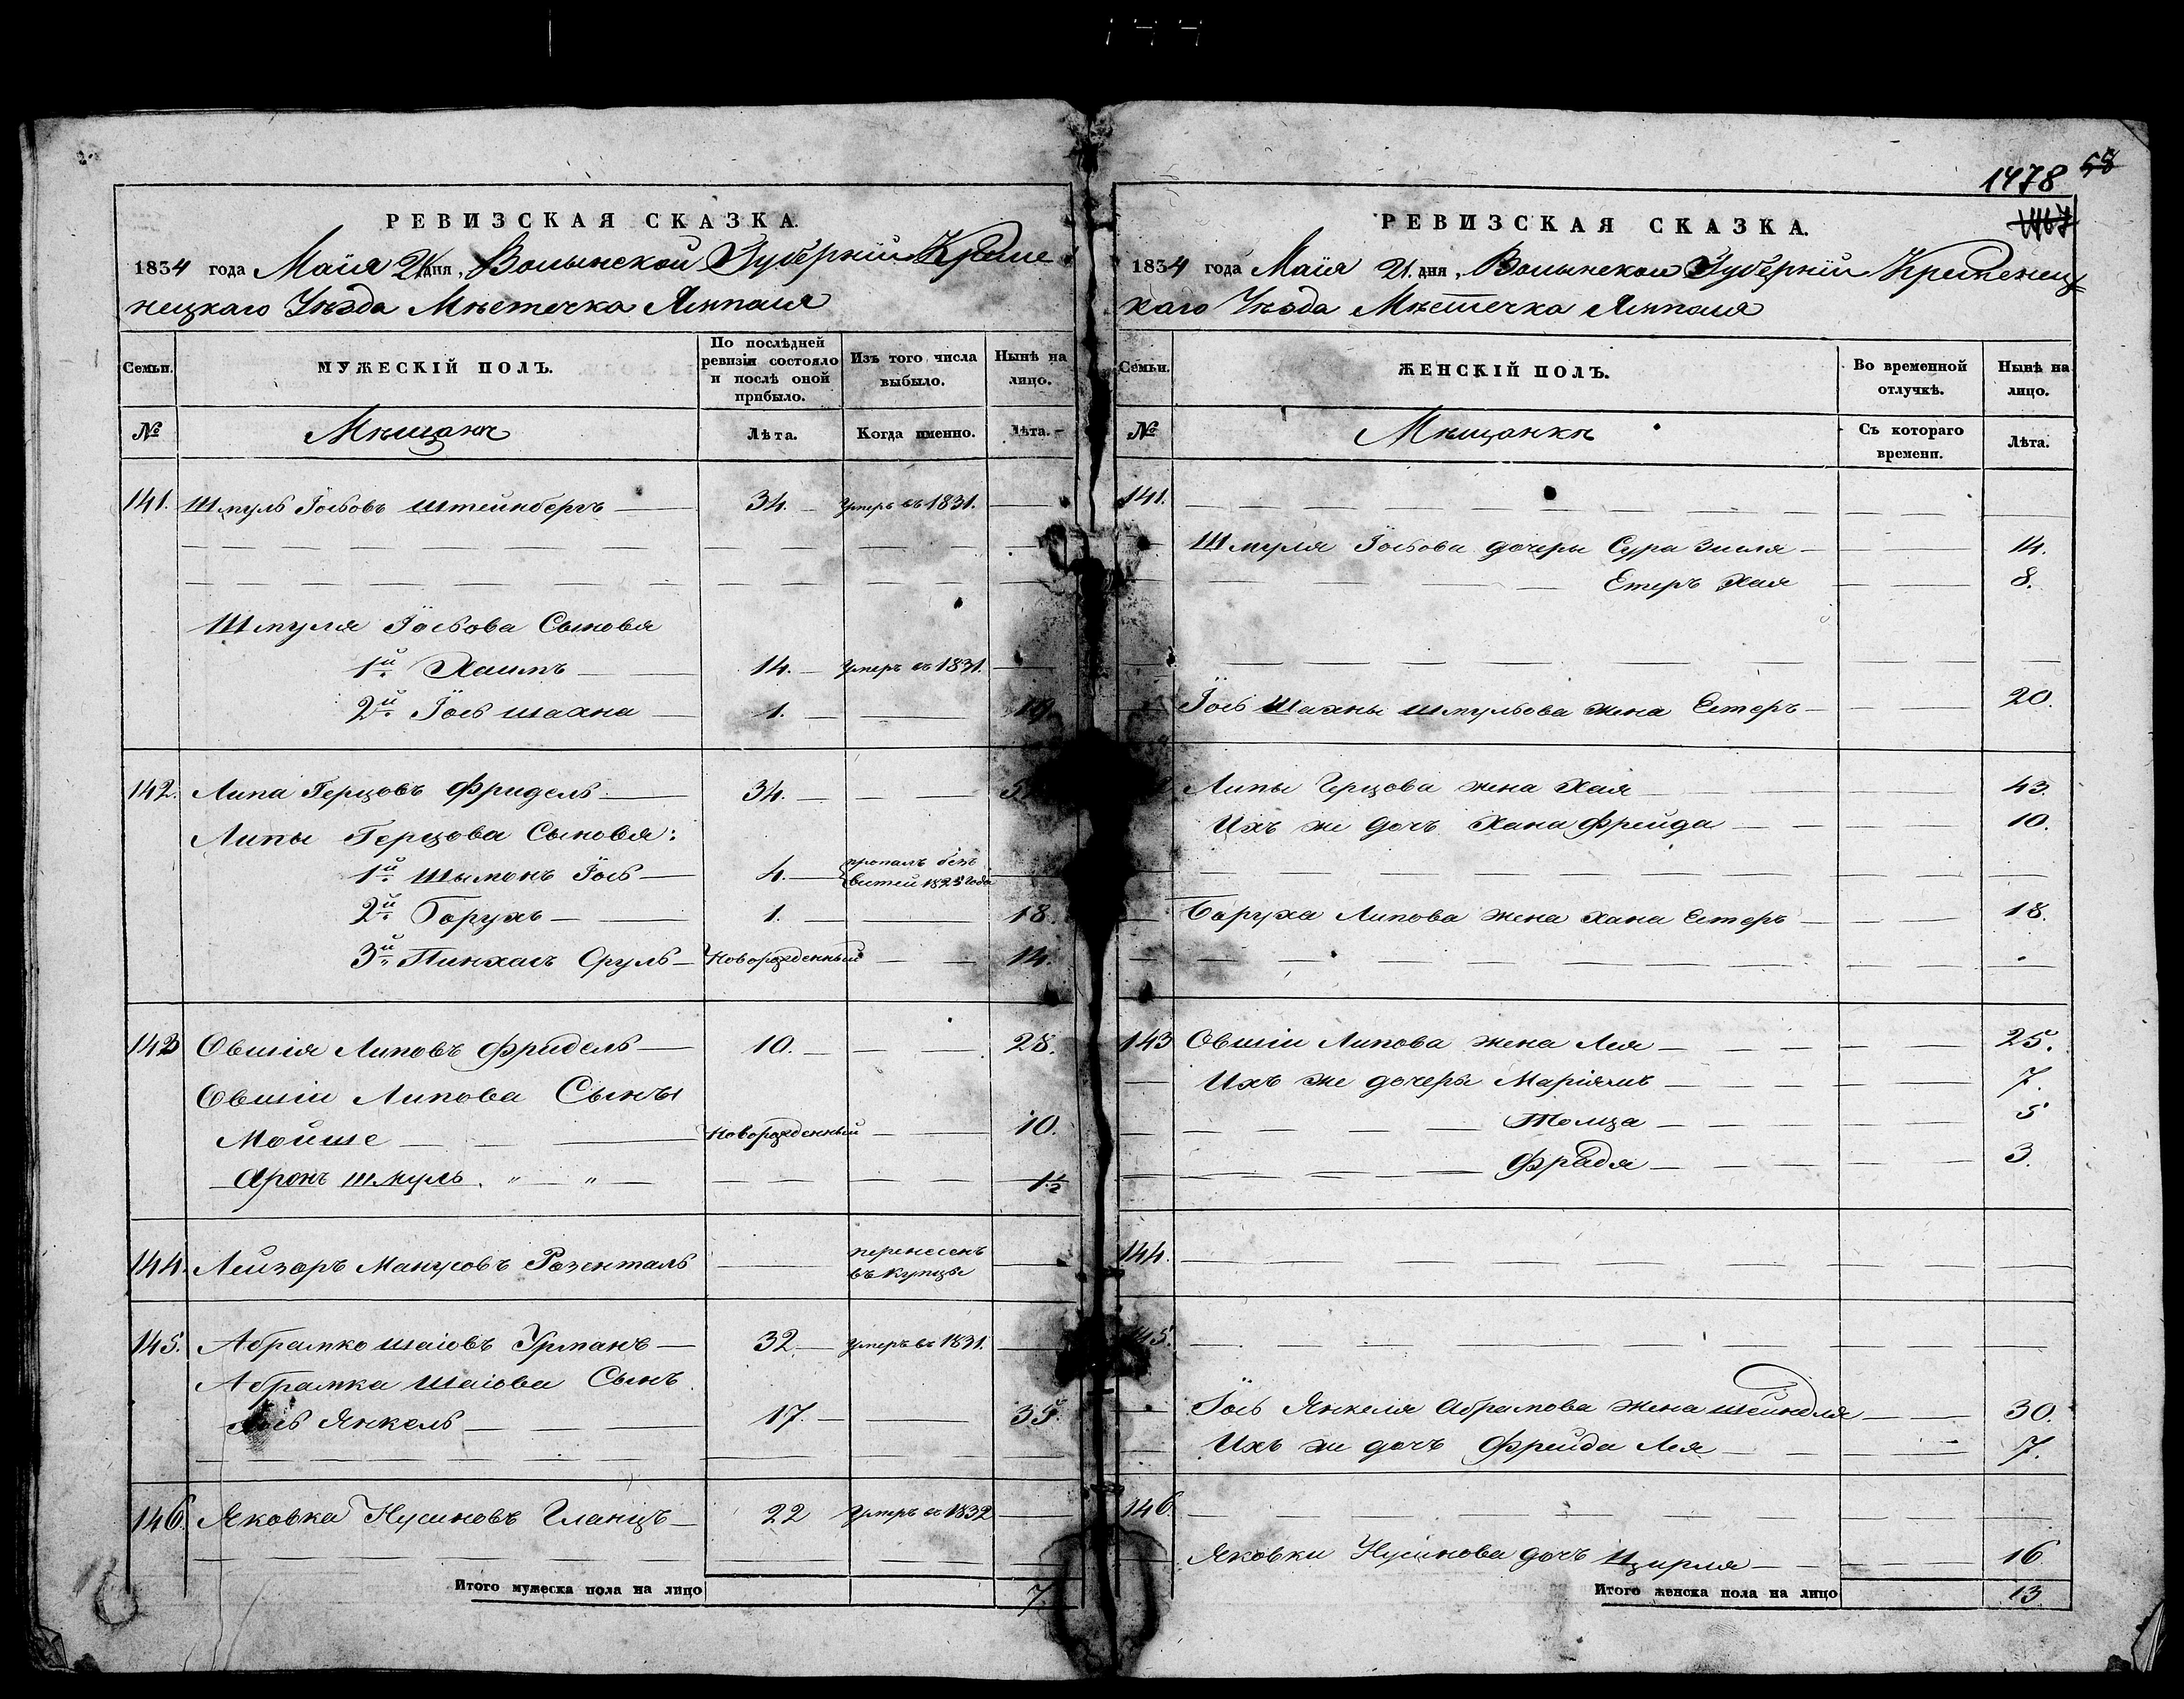 1478 58
1467
РЕВИЗСКАЯ СКАЗКА.
1834 года Маія 21 дня, Волынской Губерніи Креме
нецкаго Уѣзда Мѣстечка Ямполя
Семьи.
МУЖЕСКІЙ ПОЛЪ.
По послѣдней ревизіи состояло и послѣ оной прибыло.
Изъ того числа выбыло.
Нынѣ на лицо.
№
Мѣщанъ
Лѣта.
Когда именно.
Лѣта.
141. Шмуль Іосьовъ Штейнбергъ 34. умеръ въ 1831.
Шмуля Іосьова Сыновья
1й Хаимъ 14. умеръ въ 1831.
2й Іось Шахна 1. 19.
142. Липа Герцовъ Фридель 34.
Липы Герцова Сыновья:
1й Шымонъ Іось 4. пропалъ безъ вѣстей 1825 года
2й Борухъ 1. 18.
3й Пинхасъ Сруль Новорожденный 14.
143 Овшія Липовъ Фридель 10. 28.
Овшіи Липова Сынъı
Мойше Новорожденный 10.
Аронъ Шмуль " " 1½
144. Лейзоръ Манусовъ Розенталь перенесенъ въ купцы
145. Абрамко Шаіовъ Урманъ 32. умеръ въ 1831.
Абрамка Шаіова Сынъ
Іось Янкель 17. 35.
146. Яковка Нусиновъ Гланцъ 22 умеръ въ 1832
Итого мужеска пола на лицо 7.
РЕВИЗСКАЯ СКАЗКА.
1834 года Маія 21. дня, Волынской Губерніи Кременец
каго Уѣзда Мѣстечка Ямполя
Семьи.
ЖЕНСКІЙ ПОЛЪ.
Во временной отлучкѣ.
Нынѣ на лицо.
№
Мѣщанкъ
Съ котораго времени.
Лѣта.
141.
Шмуля Іосьова дочеры Сура Зисля 14.
Етеръ Хая 8.
Іось Шахны Шмульова жена Естеръ 20.
Липы Герцова жена Хая 43.
Ихъ же дочъ Хана Фрейда 10.
Баруха Липова жена Хана Естеръ 18.
143 Овшіи Липова жена Лея 25.
Ихъ же дочеры Маріямъ 7.
Толца 5
Фрадя 3.
144.
145.
Іось Янкеля Абрамова жена Шейндля 30.
Ихъ же дочъ Фрейда Лея 7.
146.
Яковки Нусинова дочъ Цирля 16
Итого женска пола на лицо 13